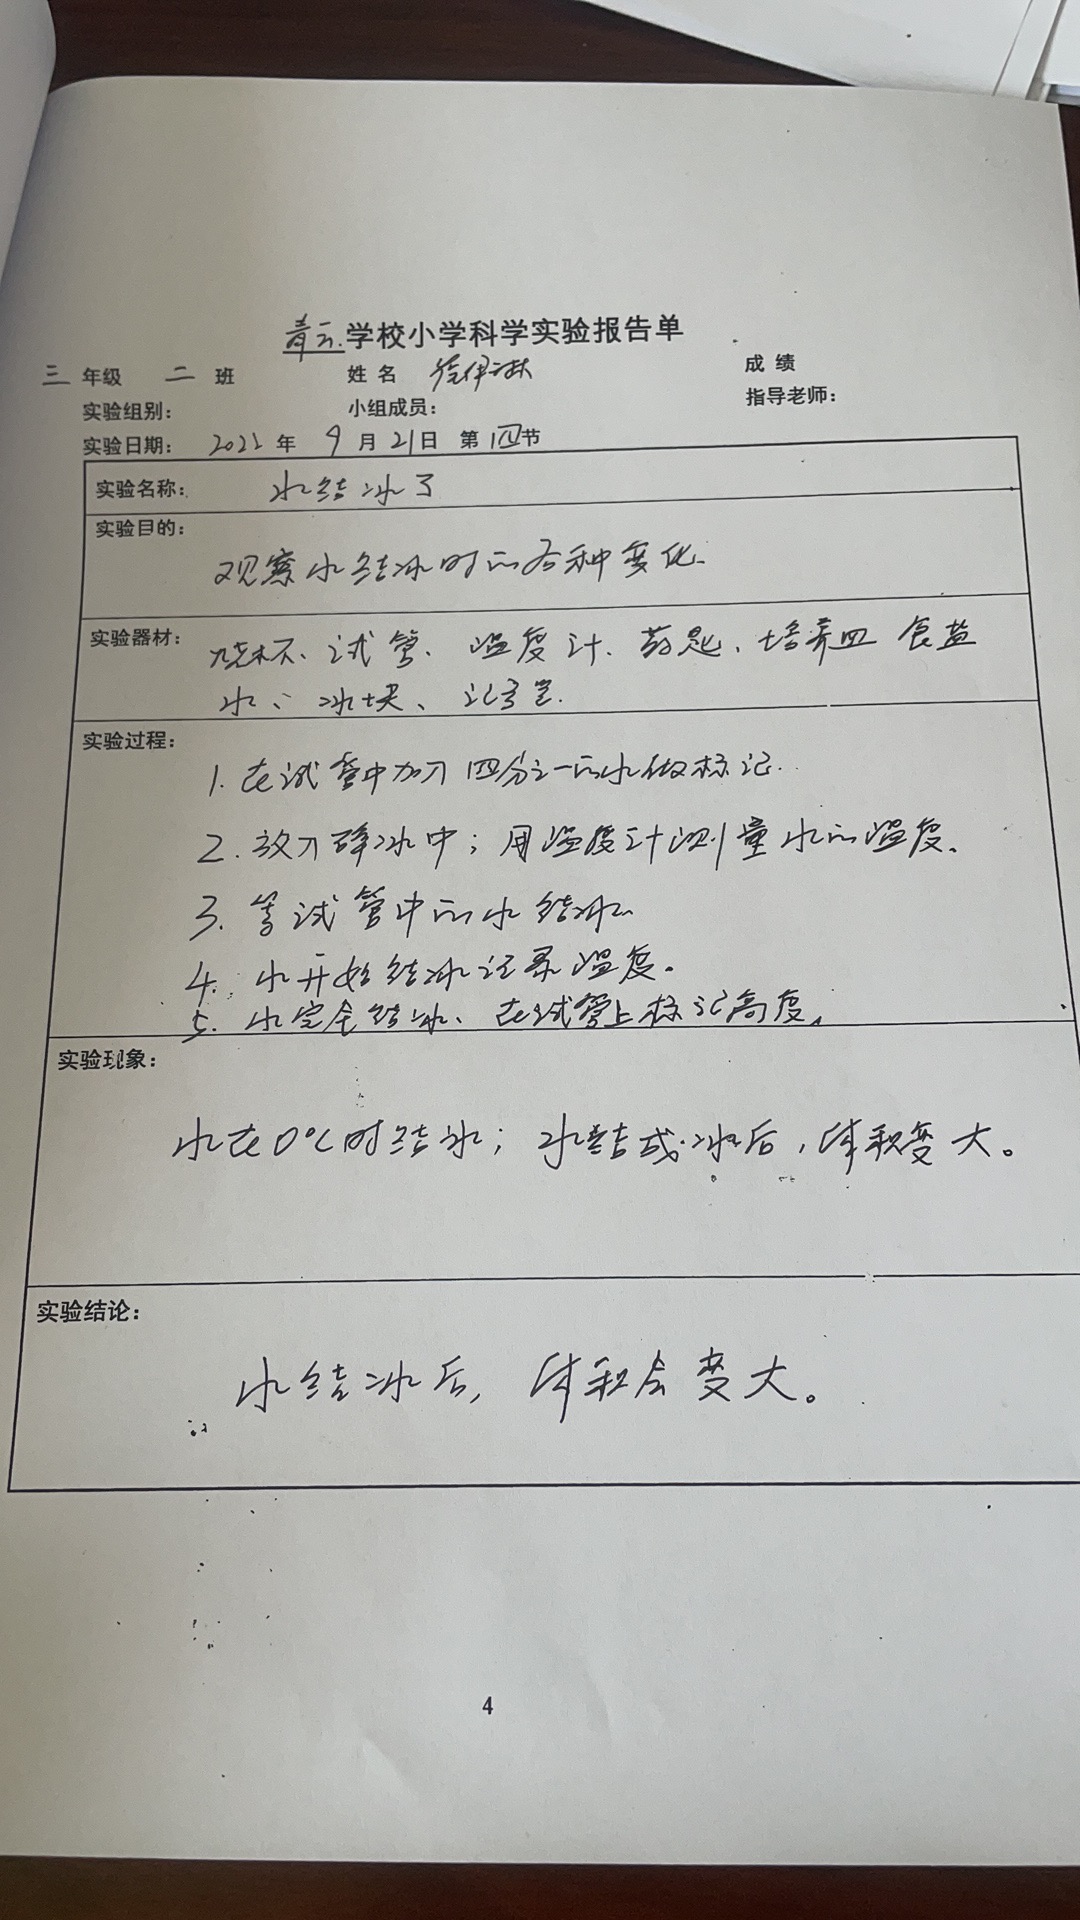 青云学校小学科学实验报告单
三 年级 二 班 姓名 徐伊琳 成绩
实验组别： 小组成员： 指导老师：
实验日期： 2022 年 9 月 21 日 第 四 节
实验名称： 水结冰了
实验目的：
观察水结冰时的各种变化.
实验器材： 烧杯、试管、温度计、药匙、培养皿 食盐
水、冰块、记号笔.
实验过程：
1. 在试管中加入四分之一的水做标记.
2. 放入碎冰中；用温度计测量水的温度。
3. 等试管中的水结冰.
4. 水开始结冰记录温度。
5. 水完全结冰、在试管上标记高度。
实验现象：
水在0℃时结冰；水结成冰后，体积变大。
实验结论：
水结冰后，体积会变大。
4